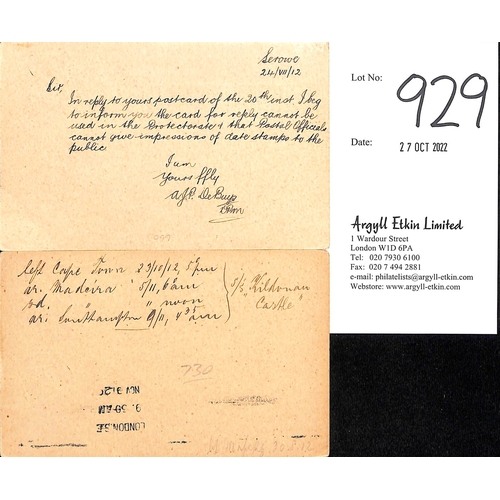 Serowe
24/VII/12
Sir,
In reply to yours postcard of the 20th inst I beg
to inform you the card for reply cannot be
used in the Protectorate & that Postal Officials
cannot give impressions of date stamps to the
public.
I am
Yours ffly
A.J.P. De Buys
left Cape Town 23/10/12, 5 pm
ar. Madeira 5/11, 6 am
" " noon
ar. Southampton 9/11, 4 35 am
S/S "Kildonan
Castle"
730
LONDON.S.E
9.30 AM
Lot No:
929
Date:
27 OCT 2022
Argyll Etkin Limited
1 Wardour Street
London W1D 6PA
Tel: 020 7930 6100
Fax: 020 7494 2881
e-mail: philatelists@argyll-etkin.com
Webstore: www.argyll-etkin.com